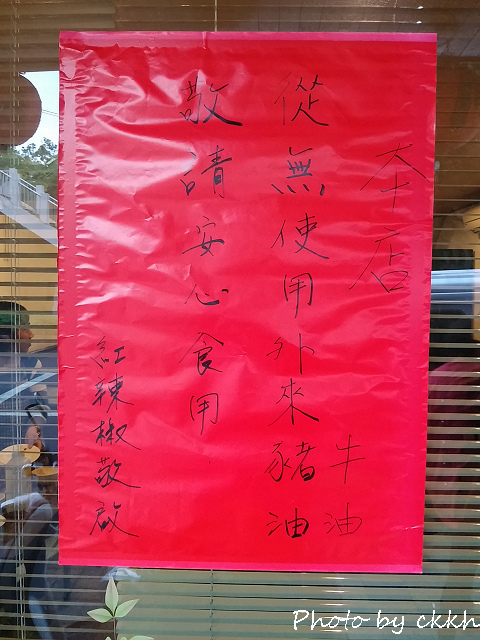 本店
從無使用外來豬油
牛油
敬請安心食用
紅辣椒敬啟
Photo by ckkh